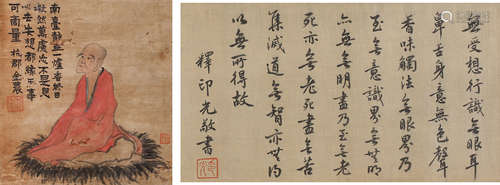 南臺靜坐一爐香終日
凝然萬慮忘不是息
心去妄想都緣無事
可商量 杭郡金農
無受想行識無眼耳
鼻舌身意無色聲
香味觸法無眼界乃
至無意識界無無明
亦無無明盡乃至無老
死亦無老死盡無苦
集滅道無智亦無得
以無所得故
釋印光敬書